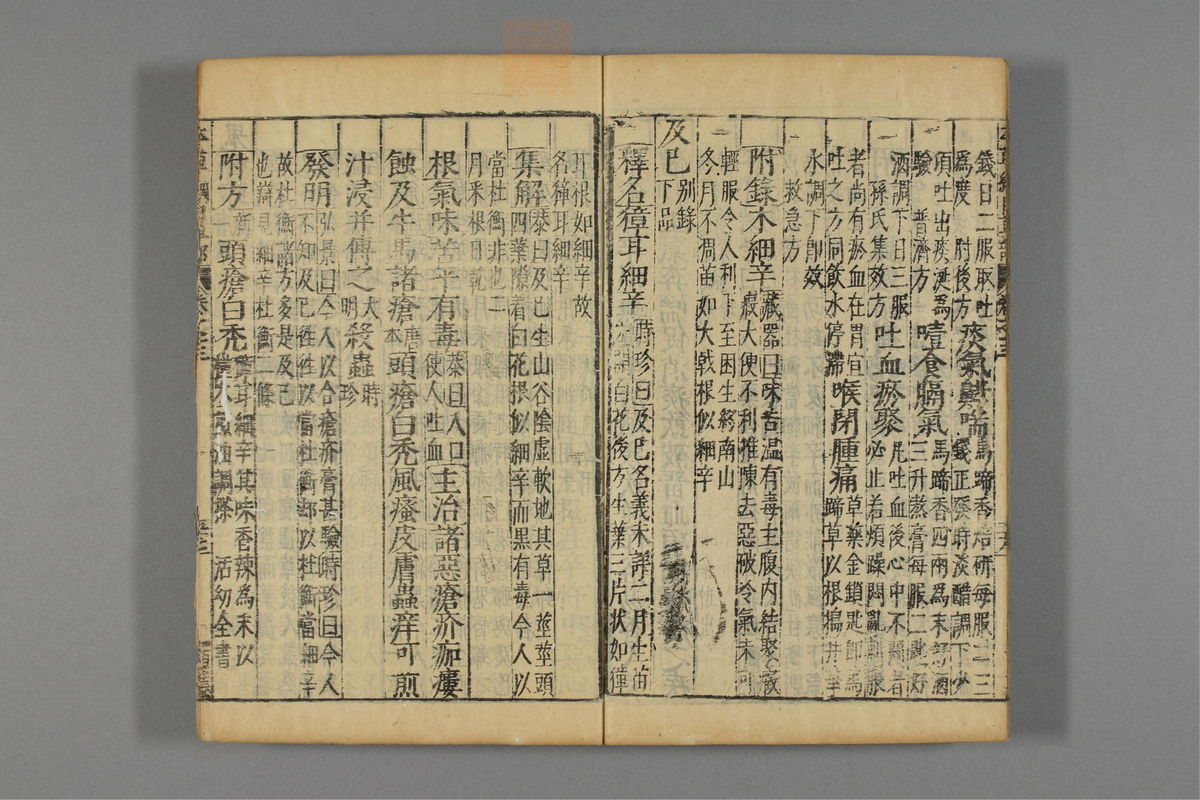 錢日二服取吐
為度 肘後方 痰氣哮喘 馬蹄香焙研每服二三
錢正發時淡醋調下少
頃吐出痰涎為
驗 普濟方 噎食膈氣 馬蹄香四兩為末好酒
三升熬膏每服二匙好
酒調下日三服
孫氏集效方 吐血瘀聚 凡吐血後心中不悶者
必止若煩躁悶亂刺脹
者尚有瘀血在胃宜
吐之方同飲水停滯 喉閉腫痛 草藥金鎖匙即馬
蹄草以根搗井華
水調下即效
救急方
附錄木細辛 藏器曰味苦溫有毒主腹內結聚癥
瘕大便不利推陳去惡破冷氣未可
輕服令人利下至困生終南山
冬月不凋苗如大戟根似細辛
及已 別錄
下品
釋名獐耳細辛 時珍曰及已名義未詳二月生苗
先開白花後方生葉三片狀如獐
耳根如細辛故
名獐耳細辛
集解 恭曰及已生山谷陰虛軟地其草一莖莖頭
四葉隙著白花根似細辛而黑有毒今人以
當杜衡非也二
月采根日乾
根氣味苦平有毒 恭曰入口
使人吐血 主治諸惡瘡疥痂瘻
蝕及牛馬諸瘡 唐
本 頭瘡白禿風瘙皮膚蟲痒可煎
汁浸并傅之 大
明 殺蟲 時
珍
發明 弘景曰今人以合瘡疥膏甚驗時珍曰今人
不知及已往往以當杜衡却以杜衡當細辛
故杜衡諸方多是及已
也辯見細辛杜衡二條
附方 新
一 頭瘡白禿 獐耳細辛其味香辣為末以
活幼全書